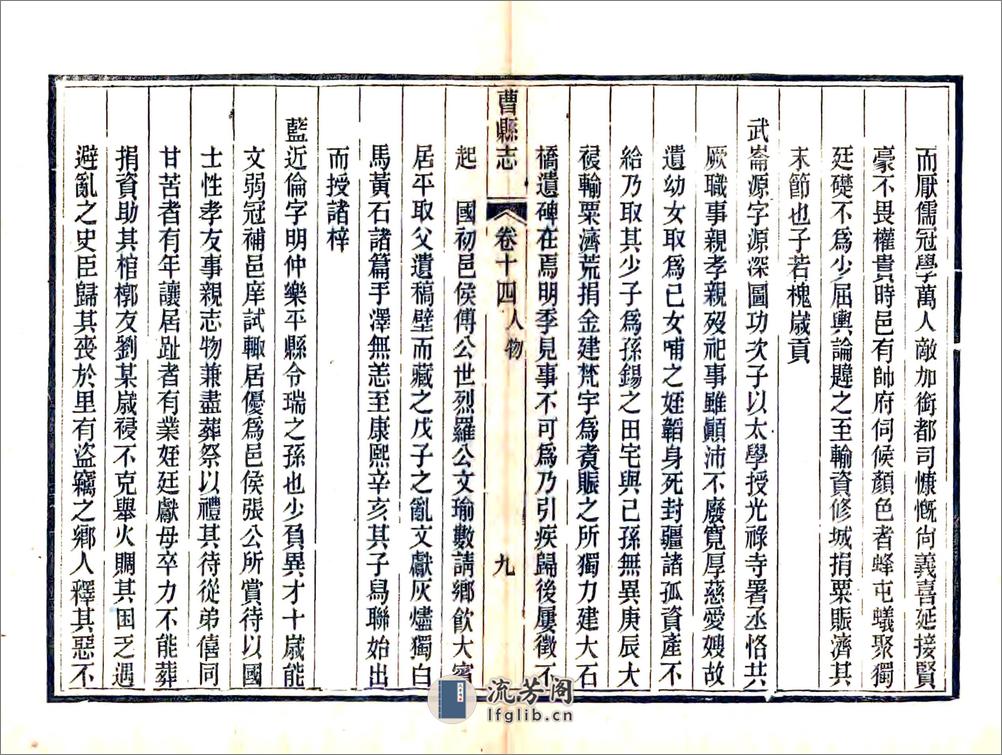 而厭儒冠學萬人敵加銜都司慷慨尙義喜延接賢
豪不畏權貴時邑有帥府伺候顏色者蜂屯蟻聚獨
廷礎不爲少屈輿論韙之至輸資修城捐粟賑濟其
末節也子若槐歲貢
武崙源字源深圖功次子以太學授光祿寺署丞恪共
厥職事親孝親歿祀事雖顚沛不廢寬厚慈愛嫂故
遺幼女取爲己女哺之姪韜身死封疆諸孤資產不
給乃取其少子爲孫錫之田宅與己孫無異庚辰大
祲輸粟濟荒捐金建梵宇爲煑賑之所獨力建大石
橋遺碑在焉明季見事不可爲乃引疾歸後屢徵不
曹縣志
卷十四人物
九
起 國初邑侯傅公世烈羅公文瑜數請鄉飮大賓
居平取父遺稿壁而藏之戊子之亂文獻灰燼獨白
馬黃石諸篇手澤無恙至康熙辛亥其子鳥聯始出
而授諸梓
藍近倫字明仲樂平縣令瑞之孫也少負異才十歲能
文弱冠補邑庠試輒居優爲邑侯張公所賞待以國
士性孝友事親志物兼盡葬祭以禮其待從弟僖同
甘苦者有年讓居趾者有業姪廷獻母卒力不能葬
捐資助其棺槨友劉某歲祲不克舉火賙其困乏遇
避亂之史臣歸其喪於里有盜竊之鄉人釋其惡不
流芳阁
lfglib.cn